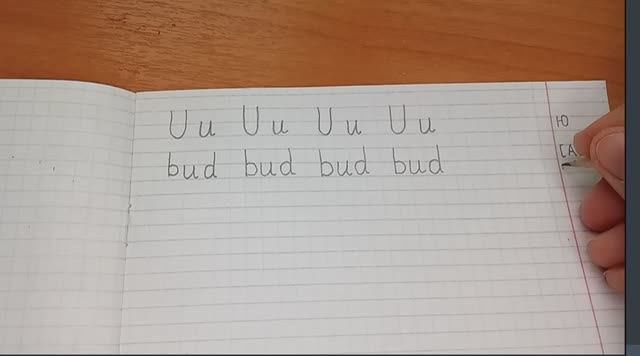 Uu Uu Uu Uu
bud bud bud bud
Ю
[А